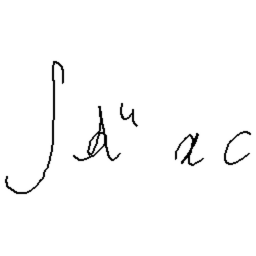 ∫ d⁴ x c